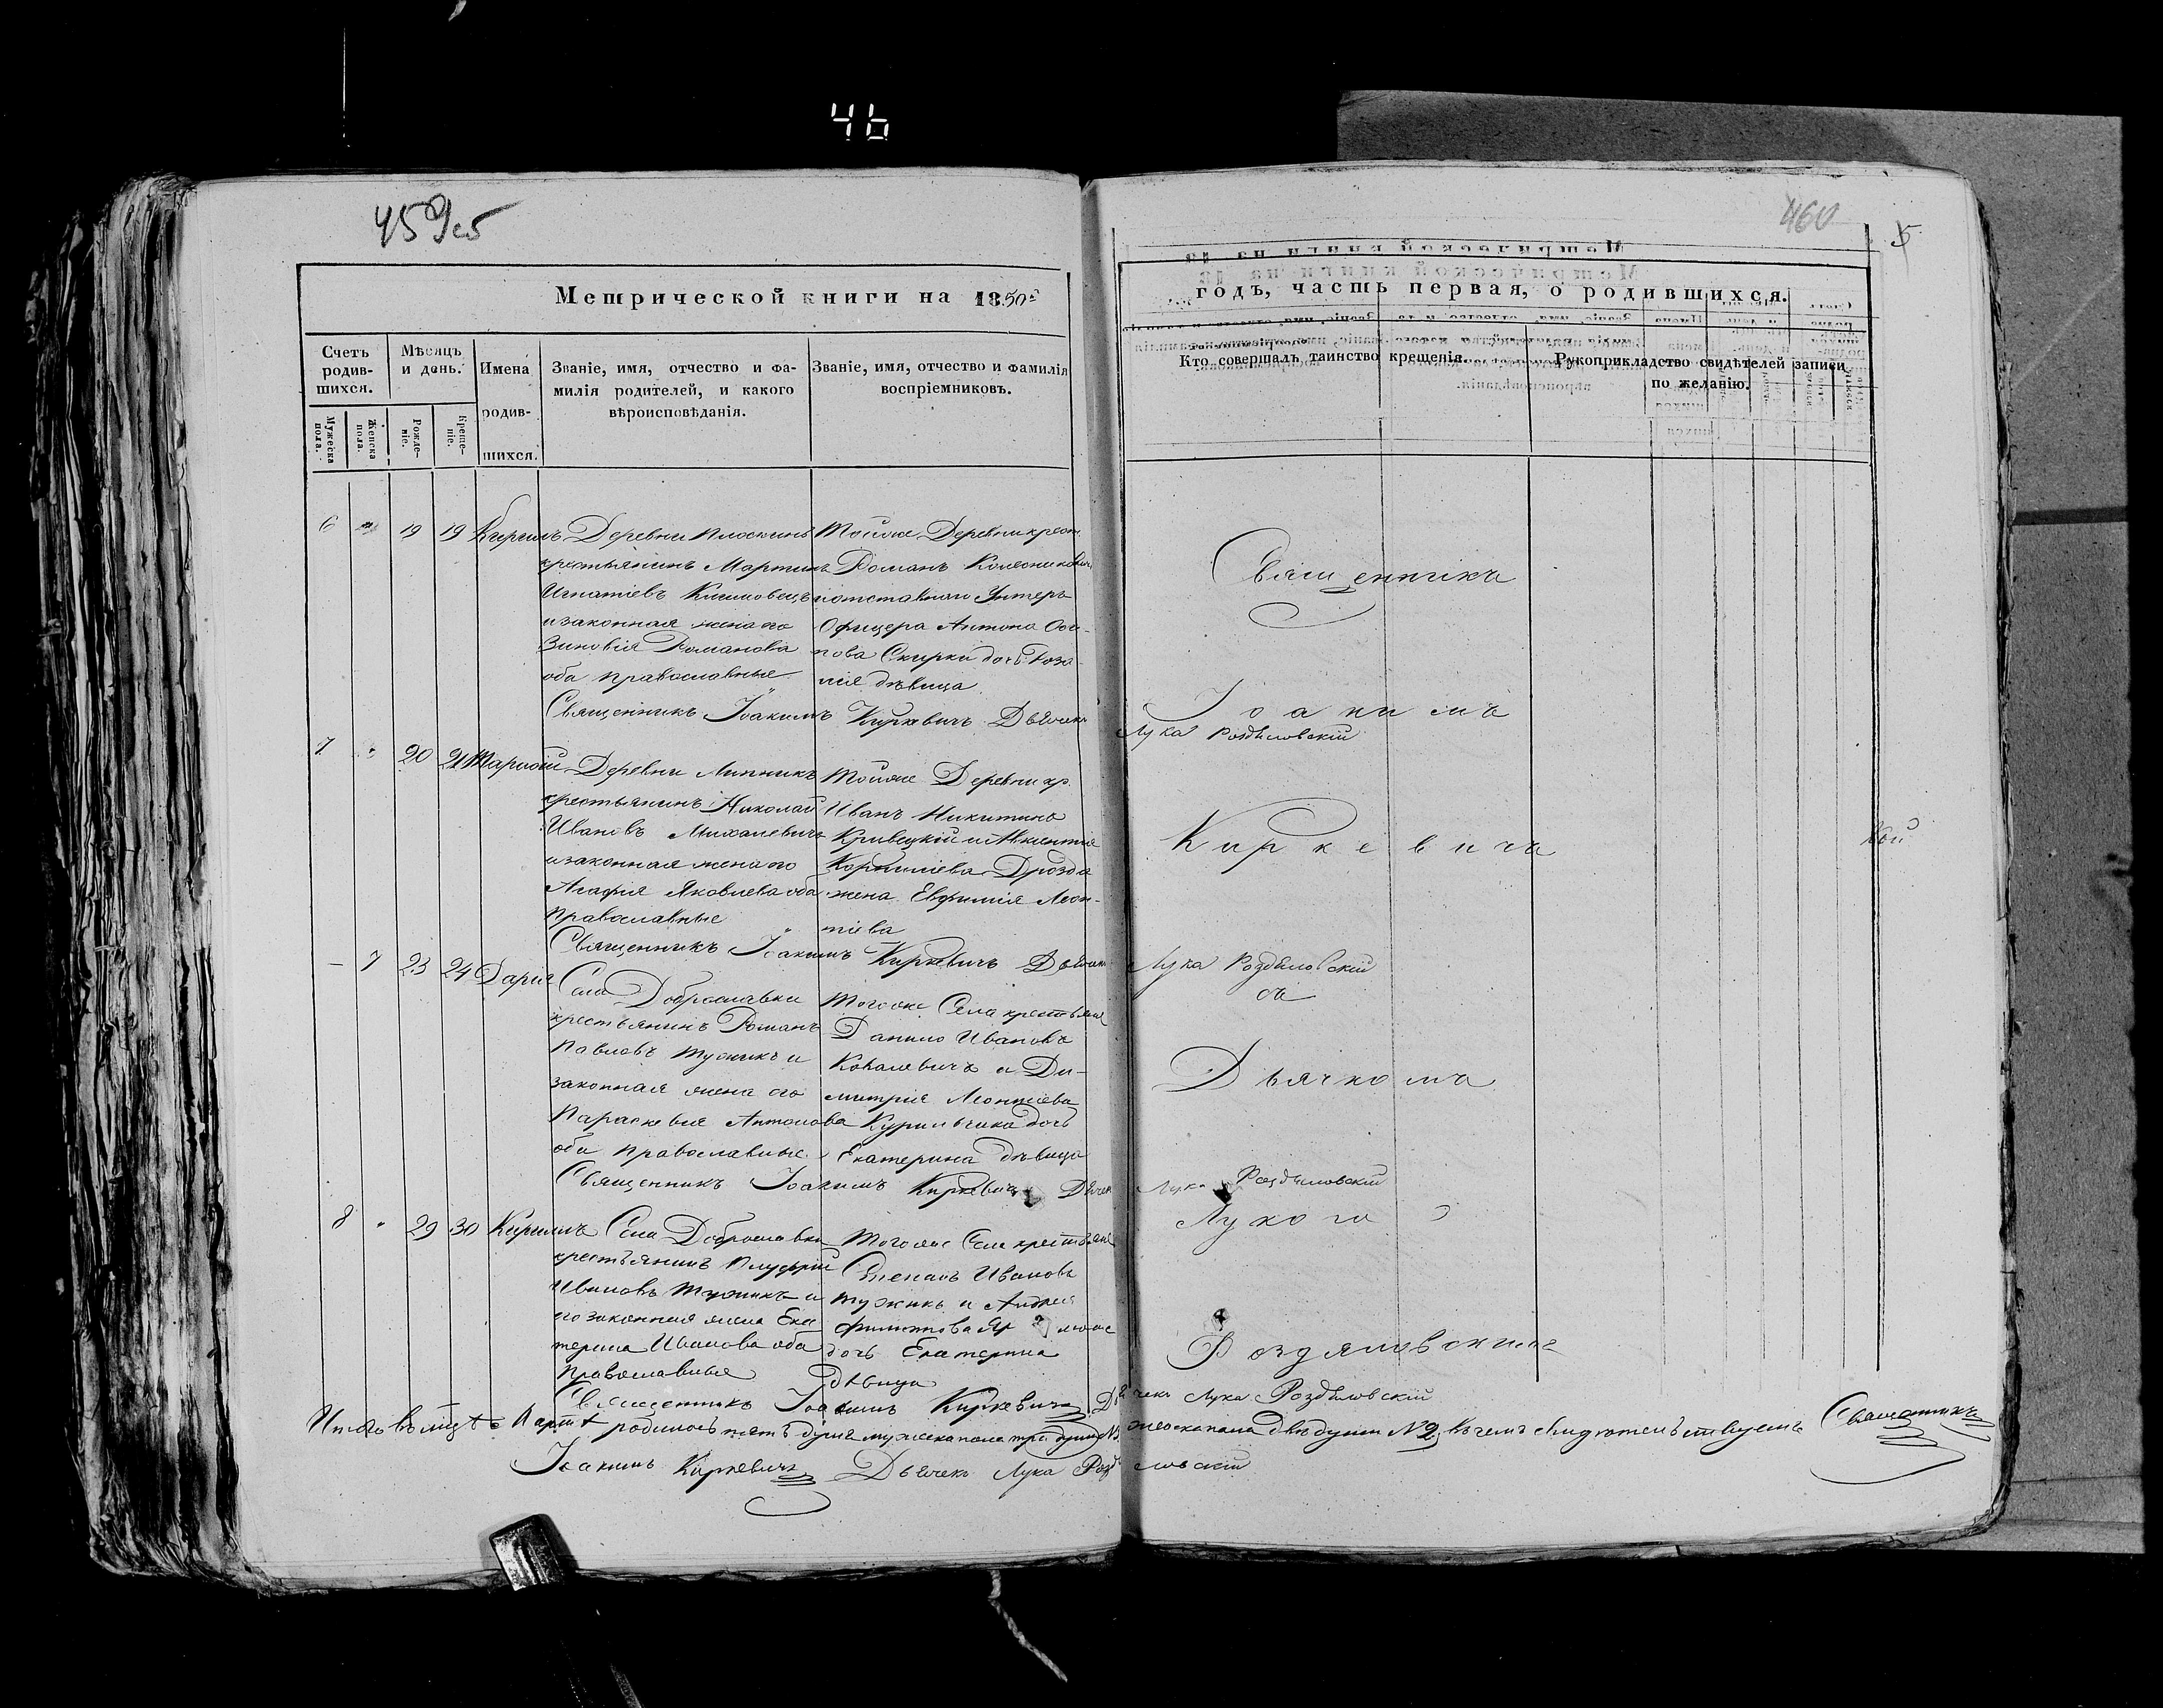 46
459об
460
5
Метрической книги на 1850й
годъ, часть первая, о родившихся.
Счетъ родив-шихся.
Мѣсяцъ и день.
Имена родив-шихся.
Званіе, имя, отчество и фа-
милія родителей, и какого
вѣроисповѣданія.
Званіе, имя, отчество и фамилія
воспріемниковъ.
Кто совершалъ таинство крещенія.
Рукоприкладство свидѣтелей записи
по желанію.
Мужеска пола.
Женска пола.
Рожде-ніе.
Креще-ніе.
6 " 19 19 Кирилъ
Деревни Плоскинь
крестьянинъ Мартинъ
Игнатіевъ Климовецъ
и законная жена его
Зиновія Романова
оба православные
Тойже Деревни крест.
Романъ Колесникович
и отставного Унтеръ
Офицера Антона Оси-
пова Скирки дочь Роза-
лія дѣвица
Священникъ Іоакимъ Киркевичъ Дьячекъ
Лука Роздяловскій
7 " 20 21
Деревни Липникъ
крестьянинъ Николай
Ивановъ Михалевичъ
и законная жена его
Агафія Яковлева оба
православные
Тойже Деревни кр.
Иванъ Никитинъ
Кривецкій и
Корнилієва Дрозда
жена Евфимія Леон-
тіева
Священникъ Іоакимъ Киркевичъ Дьячекъ
Лука Роздяловскій
– 7 23 24 Дарія
Села Доброславки
крестьянинъ Романъ
Павловъ Тужикъ и
законная жена его
Параскевія Антонова
оба православные
Тогоже Села крестьяне
Данило Ивановъ
Ковалевичъ и Ди-
митрія Леонтіева
Курильчика дочь
Екатерина дѣвица
Священникъ Іоакимъ Киркевичъ Дьячек
Лука Роздяловскій
8 " 29 30 Кирилъ
Села Доброславки
крестьянинъ Онуфрій
Ивановъ Тужикъ и
его законная жена Ека
терина Иванова оба
православные
Тогоже Села крестьяне
Степанъ Ивановъ
Тужикъ и Андрея
Филиппова
дочь Екатерина
дѣвица
Священникъ Іоакимъ Киркевичъ Дьячекъ Лука Роздяловскій
Священникъ
Іоакимъ
Киркевичъ
съ
Дьячкомъ
Лукою
Роздяловскимъ
Итого въ мцѣ Мартѣ родилось пять душъ мужеска пола три души женска пола двѣ души № 2, въ чемъ свидѣтельствуемъ Священникъ
Іоакимъ Киркевичъ Дьячекъ Лука Роздяловскій